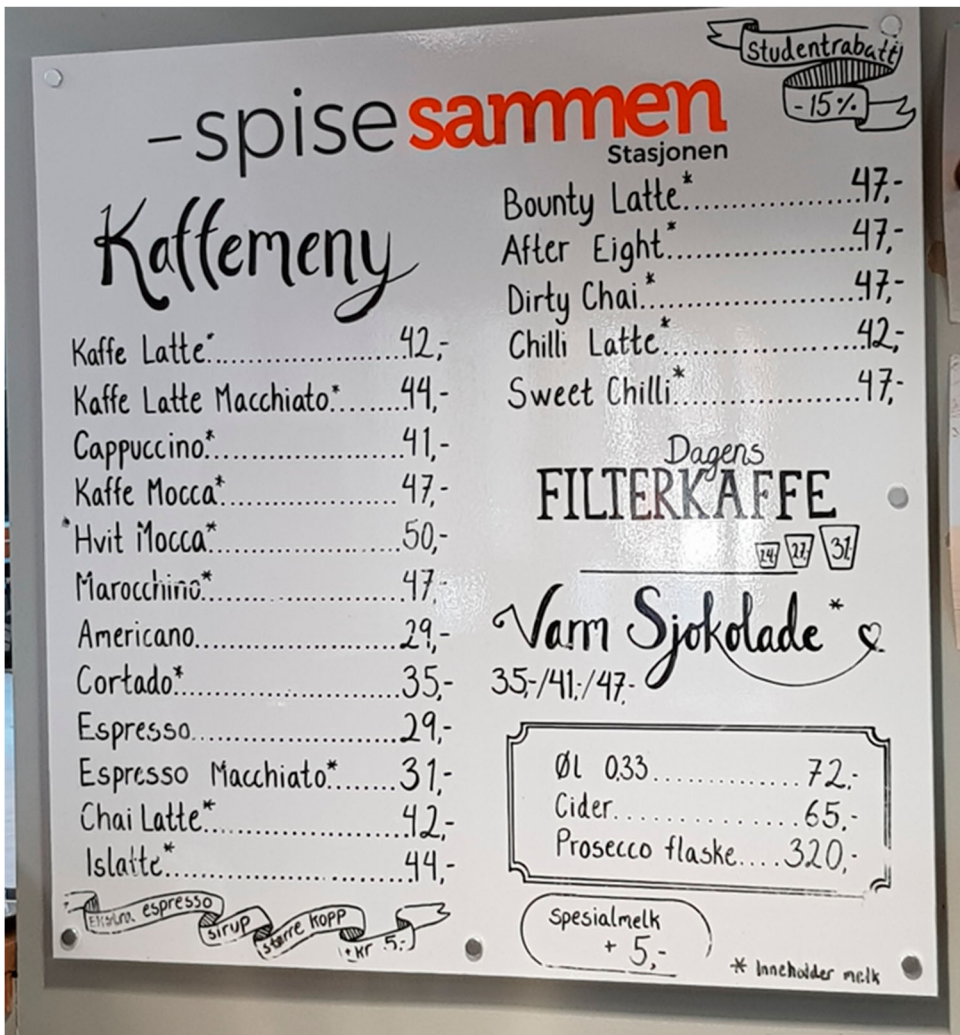 Studentrabatt
-15%
-spisesammen
Stasjonen
Kaffemeny
Kaffe Latte*....................42,-
Kaffe Latte Macchiato*........44,-
Cappuccino*....................41,-
Kaffe Mocca*..................47,-
Hvit Mocca*...................50,-
Marocchino*...................47,-
Americano.....................29,-
Cortado*......................35,-
Espresso......................29,-
Espresso Macchiato*.......31,-
Chai Latte*...................42,-
Islatte*......................44,-
Ekstra espresso
sirup
større kopp
+kr 5,-
Bounty Latte*.................47,-
After Eight*..................47,-
Dirty Chai*...................47,-
Chilli Latte*.................42,-
Sweet Chilli*.................47,-
Dagens
FILTERKAFFE
24,- 27,- 31,-
Varm Sjokolade*
35,-/41,-/47,-
ØL 0,33..............72,-
Cider................65,-
Prosecco flaske....320,-
Spesialmelk
+ 5,-
* Inneholder melk